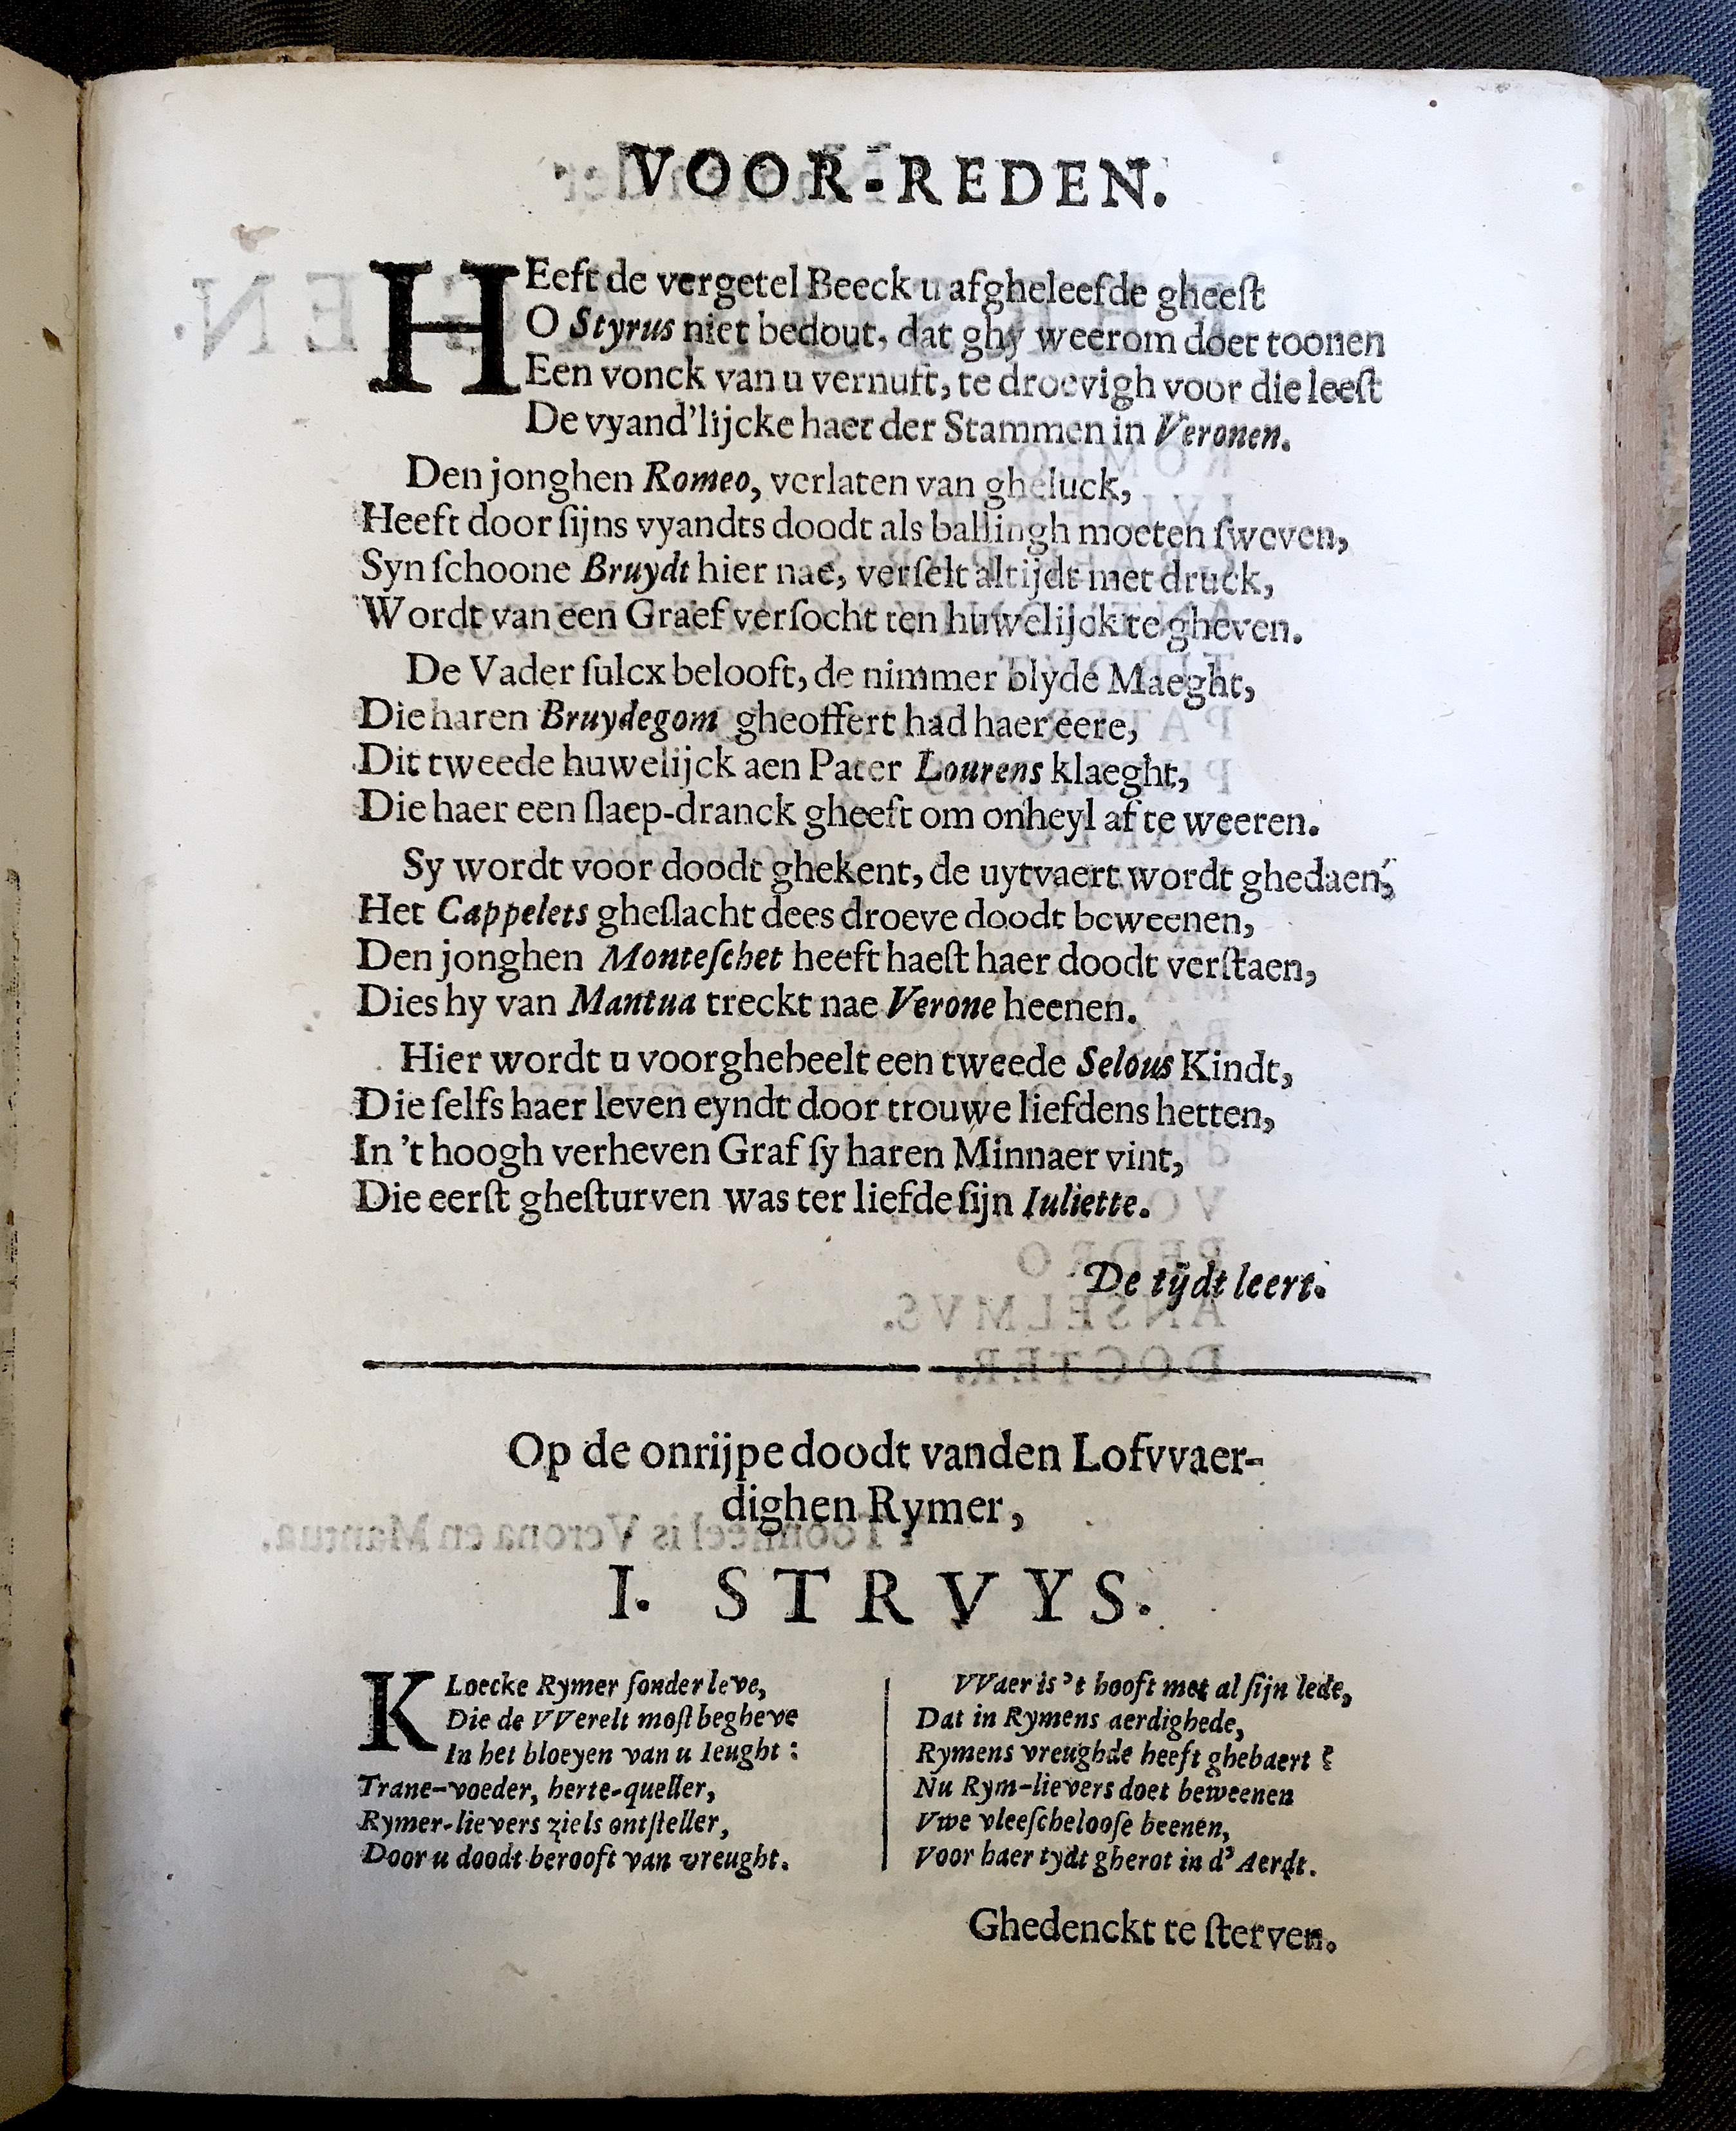 VOOR-REDEN.
HEeft de vergetel Beeck u afgheleefde gheeſt
O Styrus niet bedout, dat ghy weerom doet toonen
Een vonck van u vernuft, te droevigh voor die leeſt
De vyand'lijcke haet der Stammen in Veronen.
Den jonghen Romeo, verlaten van gheluck,
Heeft door ſijns vyandts doodt als ballingh moeten ſweven,
Syn ſchoone Bruydt hier nae, verſelt altijdt met druck,
Wordt van een Graef verſocht ten huwelijck te gheven.
De Vader ſulcx belooft, de nimmer blyde Maeght,
Die haren Bruydegom gheoffert had haer eere,
Dit tweede huwelijck aen Pater Lourens klaeght,
Die haer een ſlaep-dranck gheeft om onheyl af te weeren.
Sy wordt voor doodt ghekent, de uytvaert wordt ghedaen,
Het Cappelets gheſlacht dees droeve doodt beweenen,
Den jonghen Monteſchet heeft haeſt haer doodt verſtaen,
Dies hy van Mantua treckt nae Verone heenen.
Hier wordt u voorghebeelt een tweede Selous Kindt,
Die ſelfs haer leven eyndt door trouwe liefdens hetten,
In 't hoogh verheven Graf ſy haren Minnaer vint,
Die eerſt gheſturven was ter liefde ſijn Iuliette.
De tijdt leert.
Op de onrijpe doodt vanden Lofvvaer-
dighen Rymer,
I. STRVYS.
KLoecke Rymer ſonder leve,
Die de VVerelt moſt begheve
In het bloeyen van u Ieught:
Trane-voeder, herte-queller,
Rymer-lievers ziels ontſteller,
Door u doodt berooft van vreught.
VVaer is 't hooft met al ſijn lede,
Dat in Rymens aerdighede,
Rymens vreughde heeft ghebaert?
Nu Rym-lievers doet beweenen
Vwe vleeſchelooſe beenen,
Voor haer tydt gherot in d' Aerdt.
Ghedenckt te ſterven.